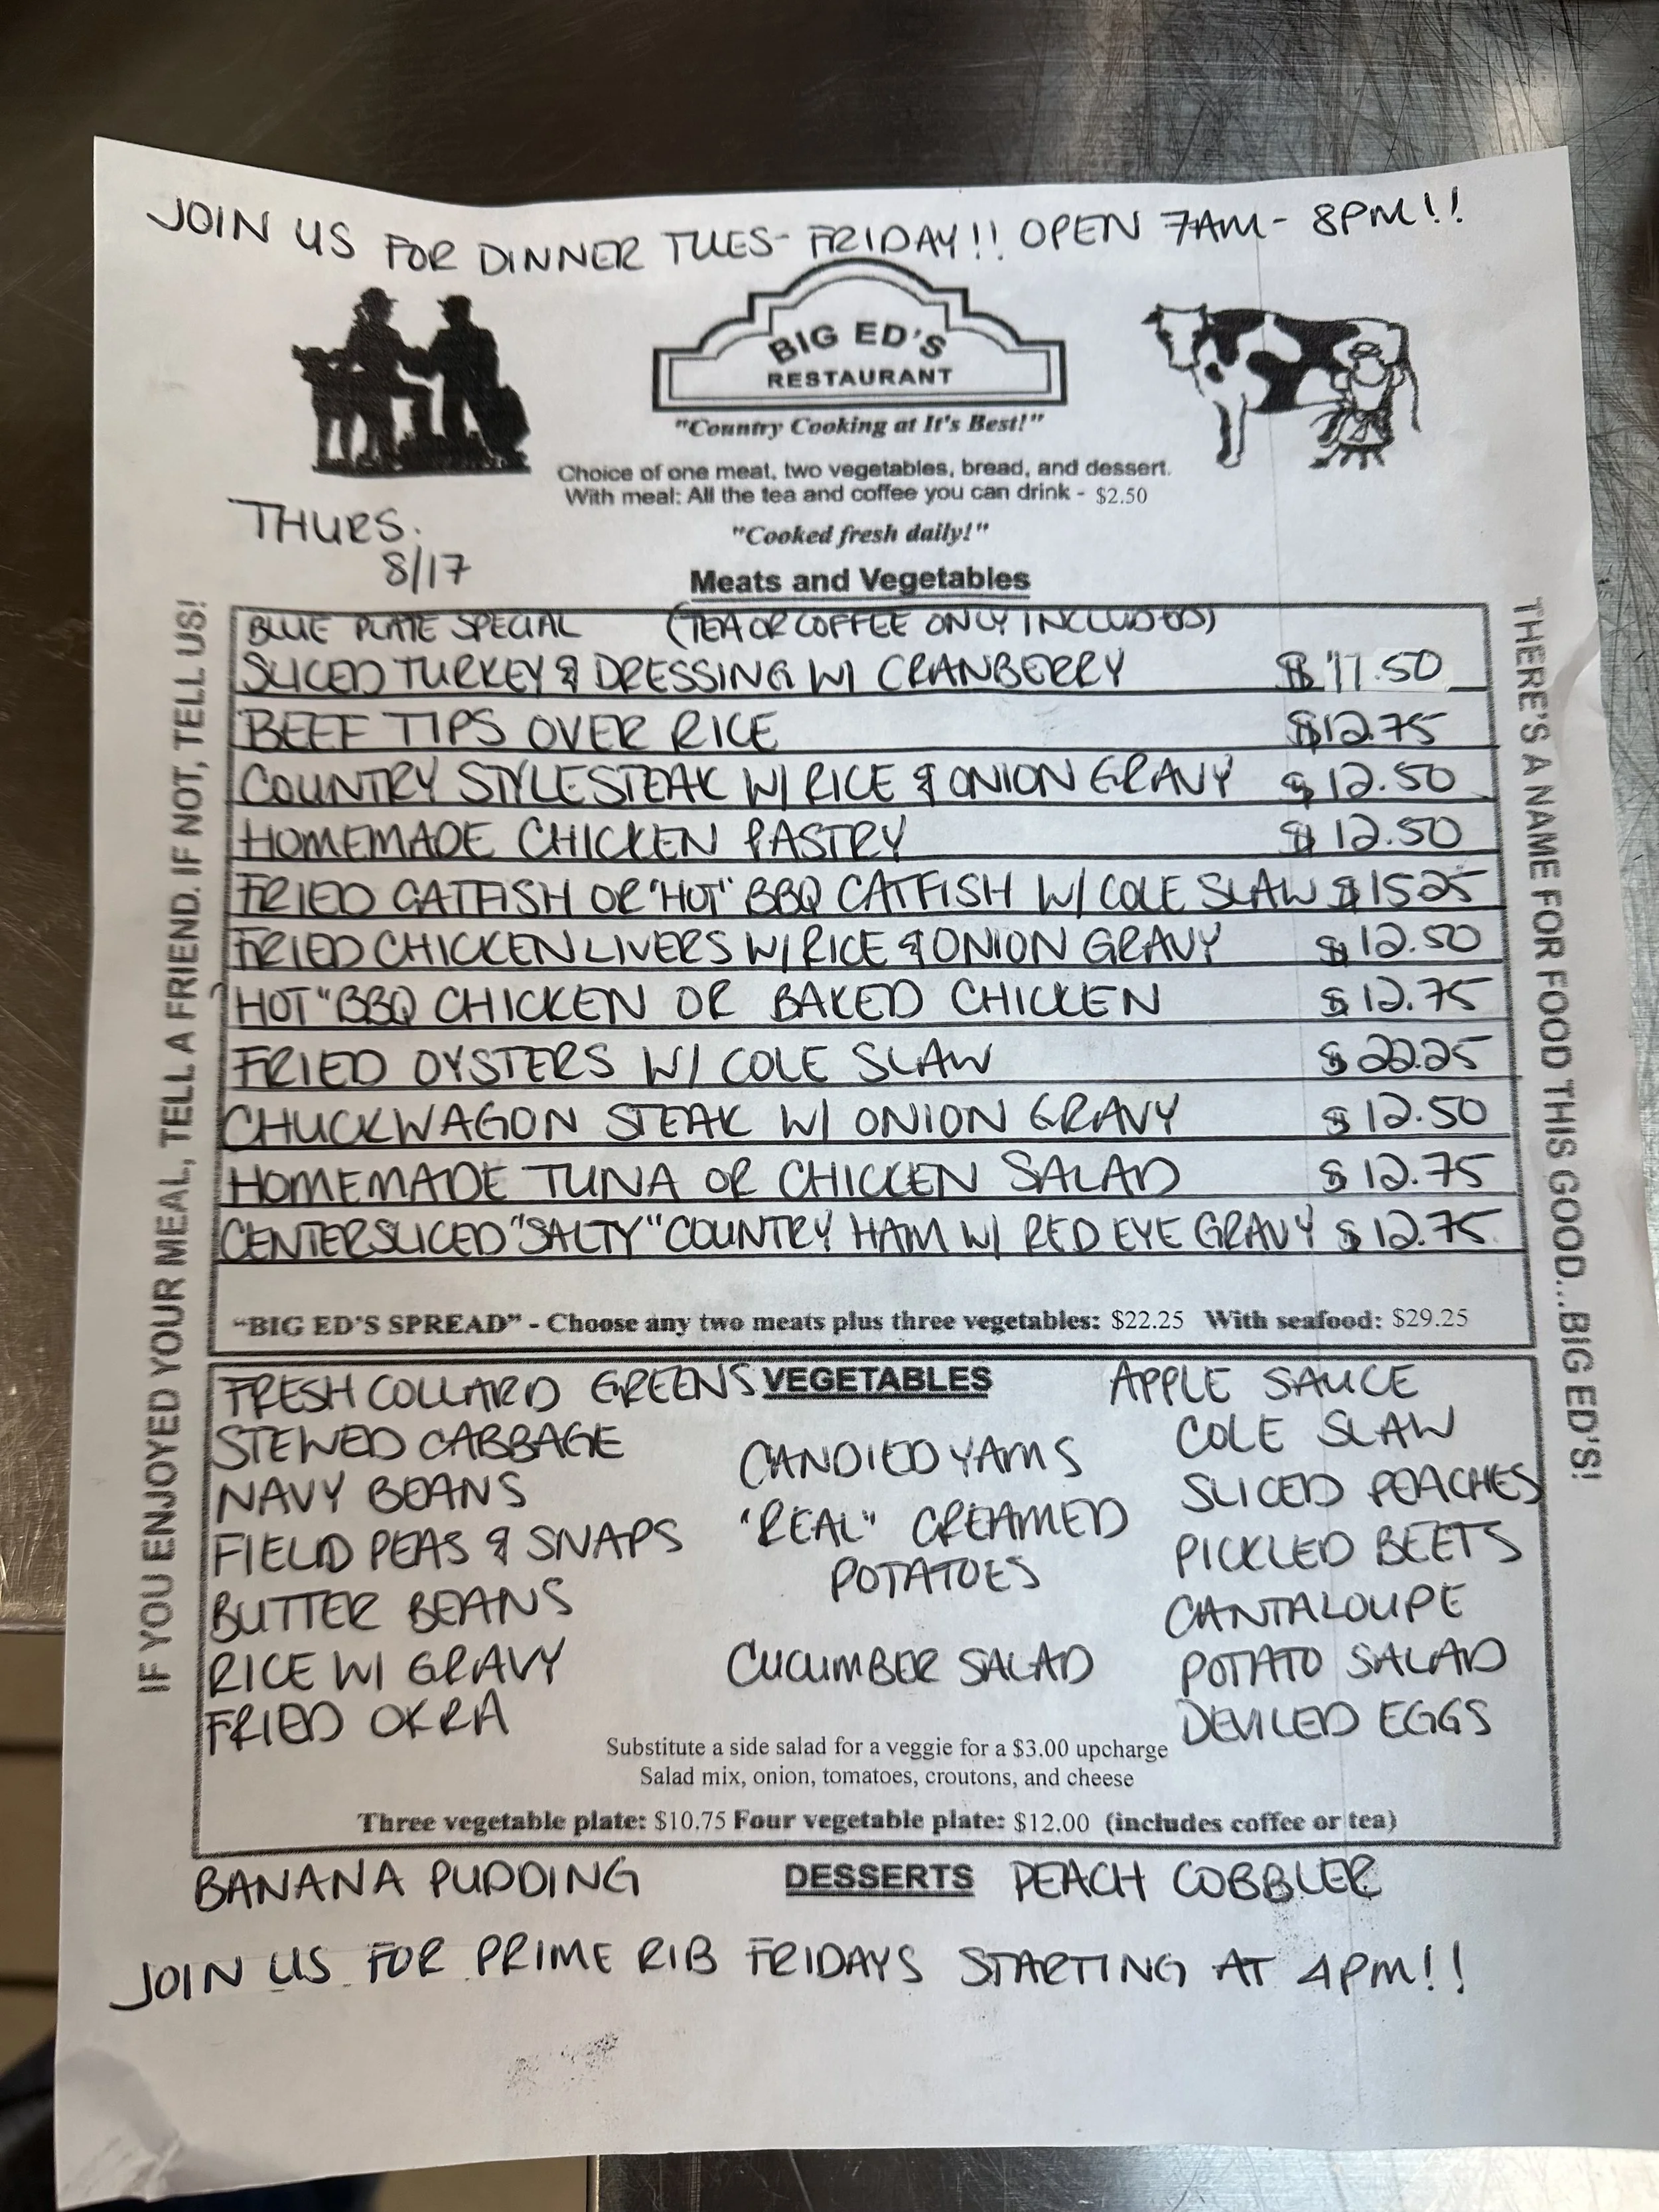 JOIN US FOR DINNER TUES- FRIDAY!! OPEN 7AM- 8PM!!
BIG ED'S
RESTAURANT
"Country Cooking at It's Best!"
Choice of one meat, two vegetables, bread, and dessert.
With meal: All the tea and coffee you can drink - $2.50
"Cooked fresh daily!"
THURS.
8/17
Meats and Vegetables
IF YOU ENJOYED YOUR MEAL, TELL A FRIEND. IF NOT, TELL US!
BLUE PLATE SPECIAL (TEA OR COFFEE ONLY INCLUDED)
SLICED TURKEY & DRESSING W/ CRANBERRY $11.50
BEEF TIPS OVER RICE $12.75
COUNTRY STYLE STEAK W/ RICE & ONION GRAVY $12.50
HOMEMADE CHICKEN PASTRY $12.50
FRIED CATFISH OR "HOT" BBQ CATFISH W/ COLE SLAW $15.25
FRIED CHICKEN LIVERS W/ RICE & ONION GRAVY $12.50
"HOT" BBQ CHICKEN OR BAKED CHICKEN $12.75
FRIED OYSTERS W/ COLE SLAW $22.25
CHUCKWAGON STEAK W/ ONION GRAVY $12.50
HOMEMADE TUNA OR CHICKEN SALAD $12.75
CENTER SLICED "SALTY" COUNTRY HAM W/ RED EYE GRAVY $12.75
"BIG ED'S SPREAD" - Choose any two meats plus three vegetables: $22.25 With seafood: $29.25
THERE'S A NAME FOR FOOD THIS GOOD...BIG ED'S!
VEGETABLES
FRESH COLLARD GREENS
STEWED CABBAGE
NAVY BEANS
FIELD PEAS & SNAPS
BUTTER BEANS
RICE W/ GRAVY
FRIED OKRA
CANDIED YAMS
"REAL" CREAMED
POTATOES
CUCUMBER SALAD
APPLE SAUCE
COLE SLAW
SLICED PEACHES
PICKLED BEETS
CANTALOUPE
POTATO SALAD
DEVILED EGGS
Substitute a side salad for a veggie for a $3.00 upcharge
Salad mix, onion, tomatoes, croutons, and cheese
Three vegetable plate: $10.75 Four vegetable plate: $12.00 (includes coffee or tea)
BANANA PUDDING DESSERTS PEACH COBBLER
JOIN US FOR PRIME RIB FRIDAYS STARTING AT 4PM!!